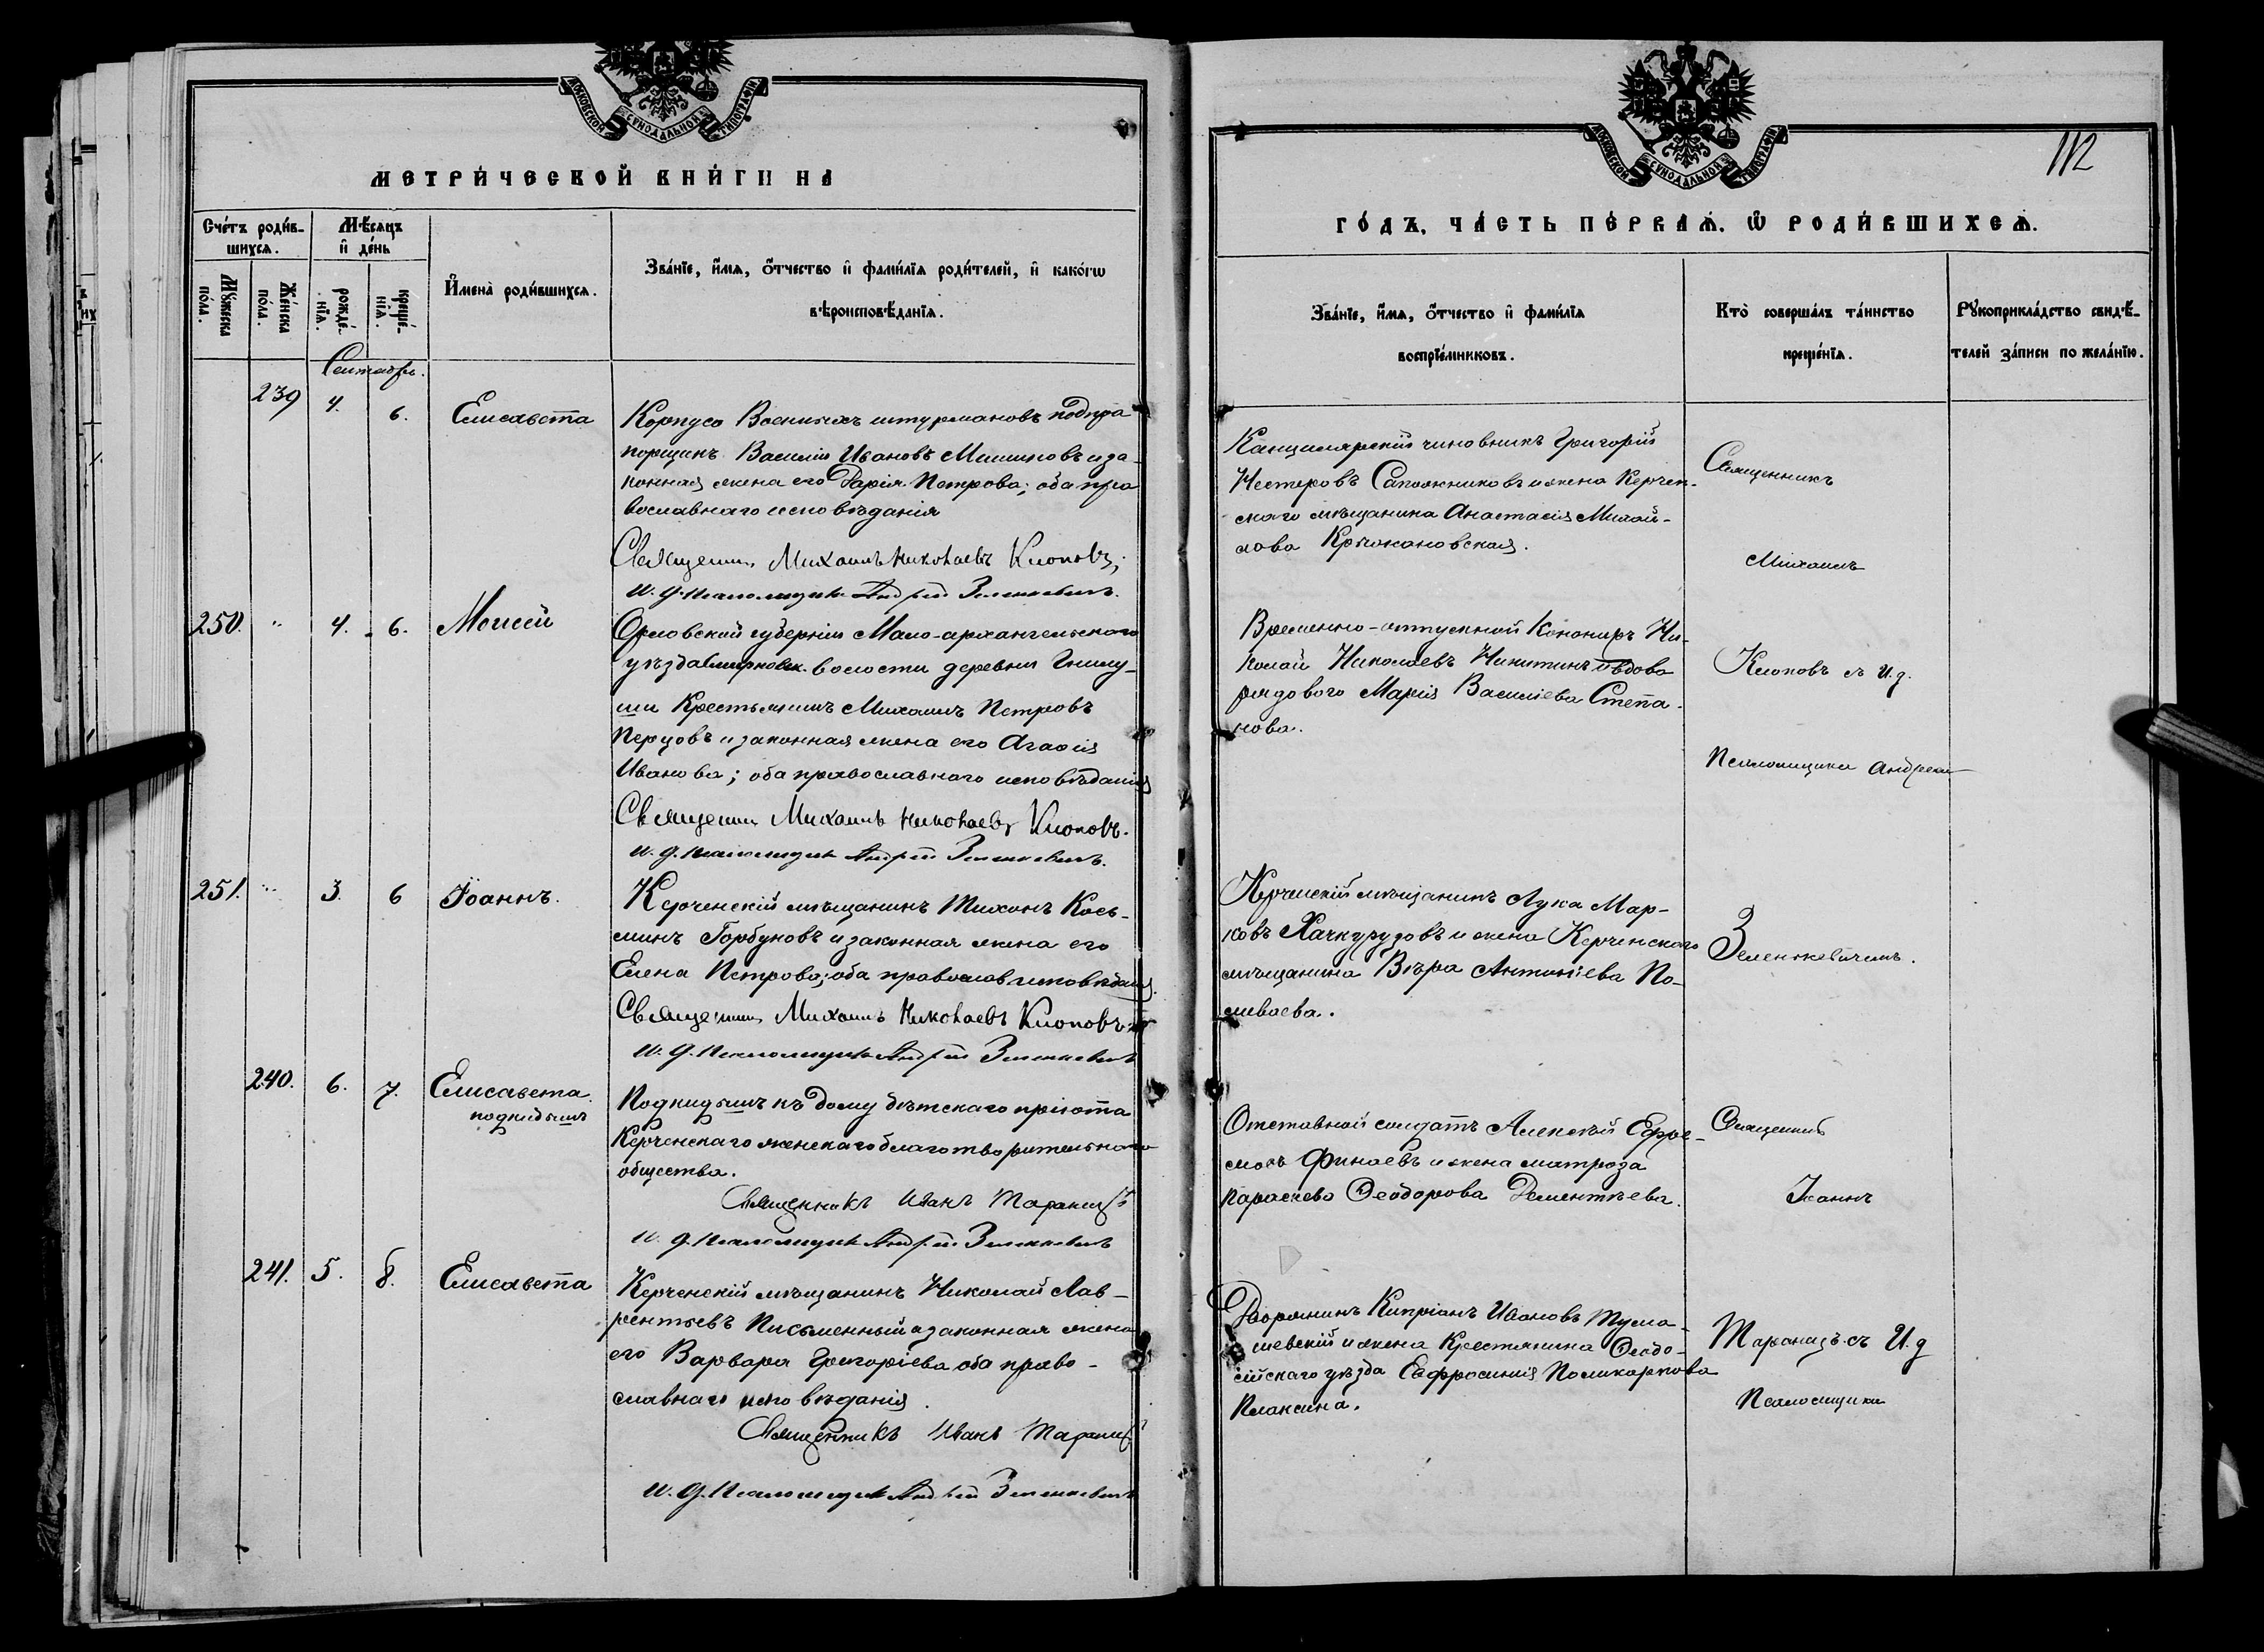 МОСКОВСКОЙ СѴНОДАЛЬНОЙ ТИПОГРАФІИ
МЕТРИ́ЧЕСКОЙ КНИ́ГИ НА
Сче́тъ роди́в-
шихсѧ.
Мѣ́сѧцъ
и҆ де́нь
И҆мена̀ роди́вшихсѧ.
Зва́нїе, и҆́мѧ, ѻ҆́тчество и҆ фами́лїѧ роди́телей, и҆ како́гѡ
вѣроисповѣ́данїѧ.
Мꙋ́жеска
по́ла.
Же́нска
по́ла.
рожде́-
нїѧ.
креще́-
нїѧ.
Сентябрь.
239 4. 6. Елисавета
Корпуса Военныхъ штурмановъ подпра
порщикъ Василій Ивановъ Мишиновъ и за-
конная жена его Дарія Петрова; оба пра
вославнаго исповѣданія
Священникъ Михаилъ Николаевъ Клоповъ;
И. д. Псаломщика Андрей Зеленкевичъ.
250. " 4. 6. Моисей
Орловской губерніи Мало-архангельскаго
уѣзда волости деревни Гнилу-
ши Крестьянинъ Михаилъ Петровъ
Перцовъ и законная жена его Агафія
Иванова; оба православнаго исповѣданія
Священникъ Михаилъ Николаевъ Клоповъ.
И. д. Псаломщика Андрей Зеленкевичъ.
251. " 3. 6 Іоаннъ.
Керченскій мѣщанинъ Тихонъ Кось-
минъ Горбуновъ и законная жена его
Елена Петрова; оба православ исповѣданія.
Священникъ Михаилъ Николаевъ Клоповъ
И. д. Псаломщика Андрей Зеленкевичъ
240. 6. 7. Елисавета
подкидышъ
Подкидышъ къ дому дѣтскаго пріюта
Керченскаго женскаго благотворительнаго
общества.
Священникъ Иванъ Таранецъ
И. д. Псаломщика Андрей Зеленкевичъ
241. 5. 8. Елисавета
Керченскій мѣщанинъ Николай Лав-
рентьевъ Письменный и законная жена
его Варвара Григоріева оба право-
славнаго исповѣданія.
Священникъ Иванъ Таранецъ
И. д. Псаломщика Андрей Зеленкевичъ
МОСКОВСКОЙ СѴНОДАЛЬНОЙ ТИПОГРАФІИ
112
ГО́ДЪ, ЧА́СТЬ ПЕ́РВАѦ, Ѡ҆ РОДИ́ВШИХСѦ.
Зва́нїе, и҆́мѧ, ѻ҆́тчество и҆ фами́лїѧ
воспрїе́мниковъ.
Кто̀ соверша́лъ та́инство
креще́нїѧ.
Рꙋкоприкла́дство свидѣ́-
телей за́писи по жела́нїю.
Канцелярскій чиновникъ Григорій
Нестеровъ Сапожниковъ и жена Керчен-
скаго мѣщанина Анастасія Михай-
лова Крыжановская.
Священникъ
Михаилъ
Временно-отпускной Конониръ Ни-
колай Николаевъ Никитинъ и вдова
рядового Марія Василіева Степа-
нова.
Клоповъ съ И.д.
Псаломщика Андреемъ
Керченскій мѣщанинъ Лука Мар-
ковъ Хачкурузовъ и жена Керченскаго
мѣщанина Вѣра Антоніева По-
ливаева.
Зеленкевичемъ.
Отставной солдатъ Алексѣй Ефре-
мовъ Финаевъ и жена матроза
Параскева Ѳеодорова Дементьева.
Священникъ
Іоаннъ
Дворянинъ Кипріанъ Ивановъ Тума-
шевскій и жена Крестянина Ѳеодо-
сійскаго уѣзда Евфросинія Поликарпова
Плаксина.
Таранецъ съ И.д
Псаломщика